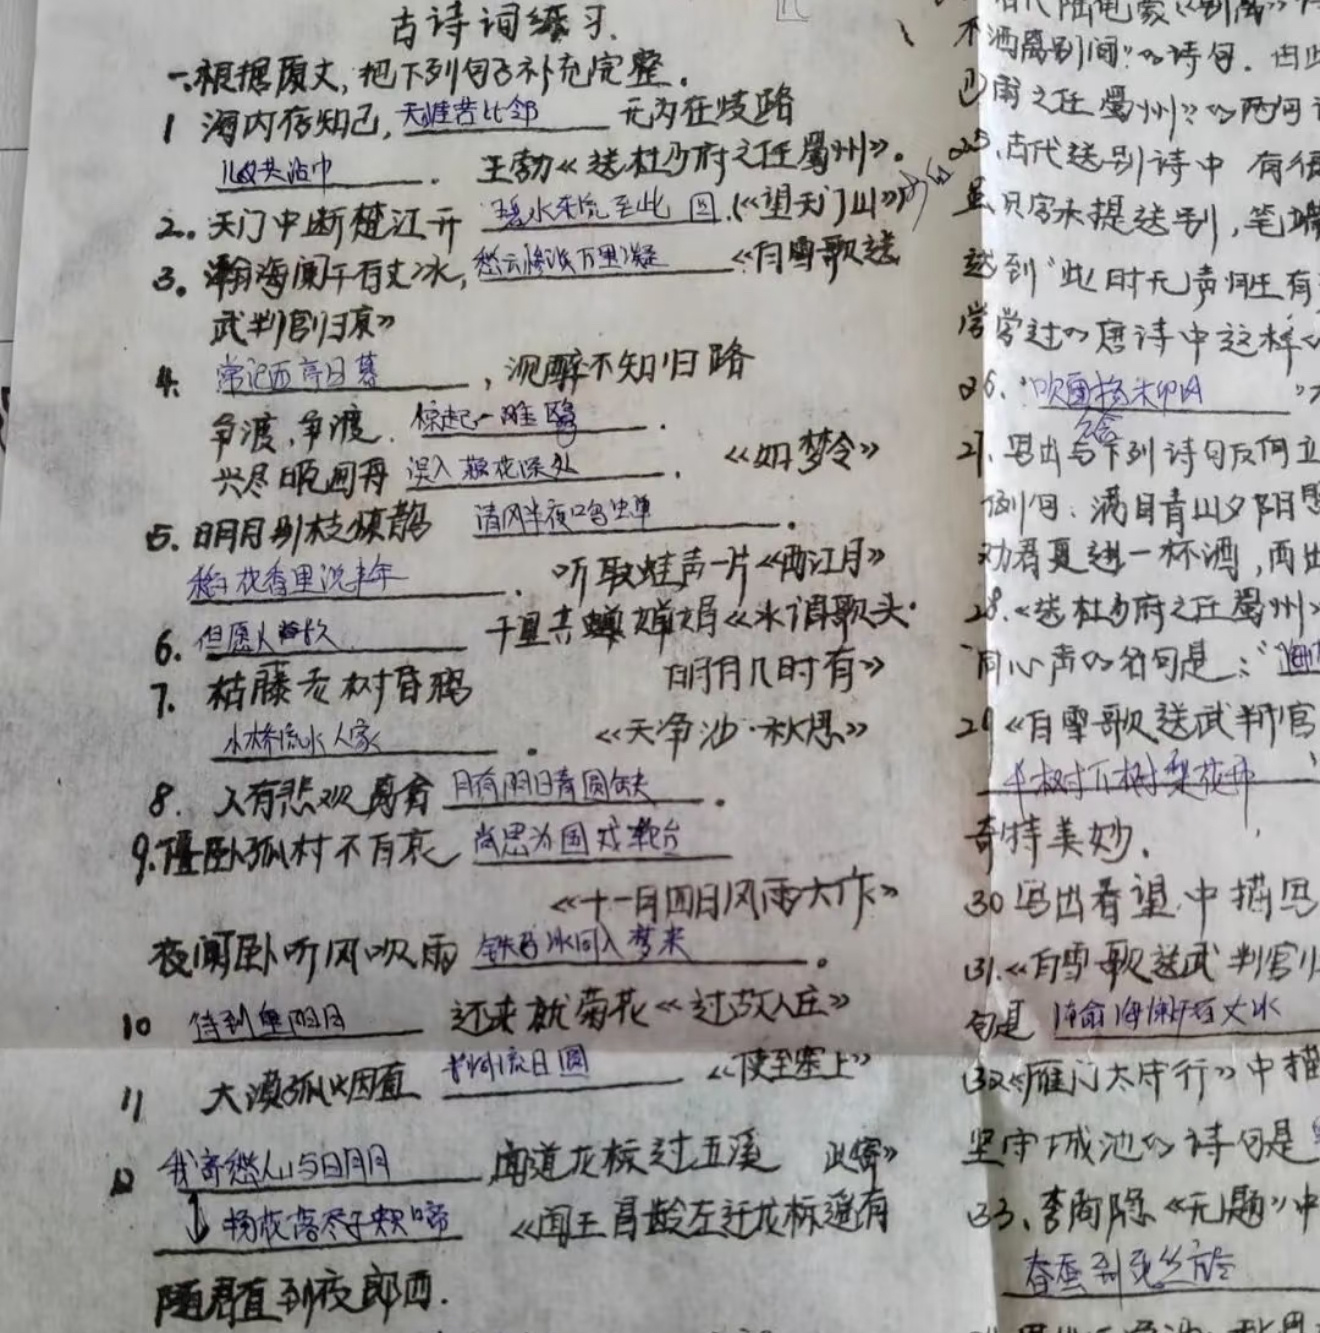 古诗词练习.
一.根据原文,把下列句子补充完整.
1 海内存知己, 天涯若比邻 无为在歧路
儿女共沾巾. 王勃《送杜少府之任蜀州》.
2. 天门中断楚江开 碧水东流至此回.(《望天门山》)
3. 瀚海阑干百丈冰, 愁云惨淡万里凝 《白雪歌送
武判官归京》
4. 常记西亭日暮, 沉醉不知归路
争渡,争渡. 惊起一滩鸥鹭.
兴尽晚回舟 误入藕花深处. 《如梦令》
5. 明月别枝惊鹊 清风半夜鸣蝉.
稻花香里说丰年. 听取蛙声一片《西江月》
6. 但愿人长久 千里共婵娟《水调歌头·
明月几时有》
7. 枯藤老树昏鸦
小桥流水人家. 《天净沙·秋思》
8. 人有悲欢离合 月有阴晴圆缺.
9. 僵卧孤村不自哀 尚思为国戍轮台
《十一月四日风雨大作》
夜阑卧听风吹雨 铁马冰河入梦来.
10 待到重阳日 还来就菊花《过故人庄》
11 大漠孤烟直 长河落日圆 《使至塞上》
12 我寄愁心与明月, 闻道龙标过五溪 此寄》
杨花落尽子规啼 《闻王昌龄左迁龙标遥有
随君直到夜郎西.
不洒离别间"的诗句. 由此
之任蜀州》的两句
25. 古代送别诗中 有很
虽只字未提送别, 笔端
送到"此时无声胜有
学学过的唐诗中这样
26. "吹面杨柳风
27. 写出与下列诗句反向立
例句: 满目青山夕阳
劝君更进一杯酒, 西出
28. 《送杜少府之任蜀州》
同心声的名句是:"海内
29 《白雪歌送武判官
千树万树梨花开
奇特美妙.
30 写出春望中描写
31. 《白雪歌送武判官归
句是 瀚海阑干百丈冰
32 《雁门太守行》中描
坚守城池的诗句是
33. 李商隐《无题》中
春蚕到死丝方